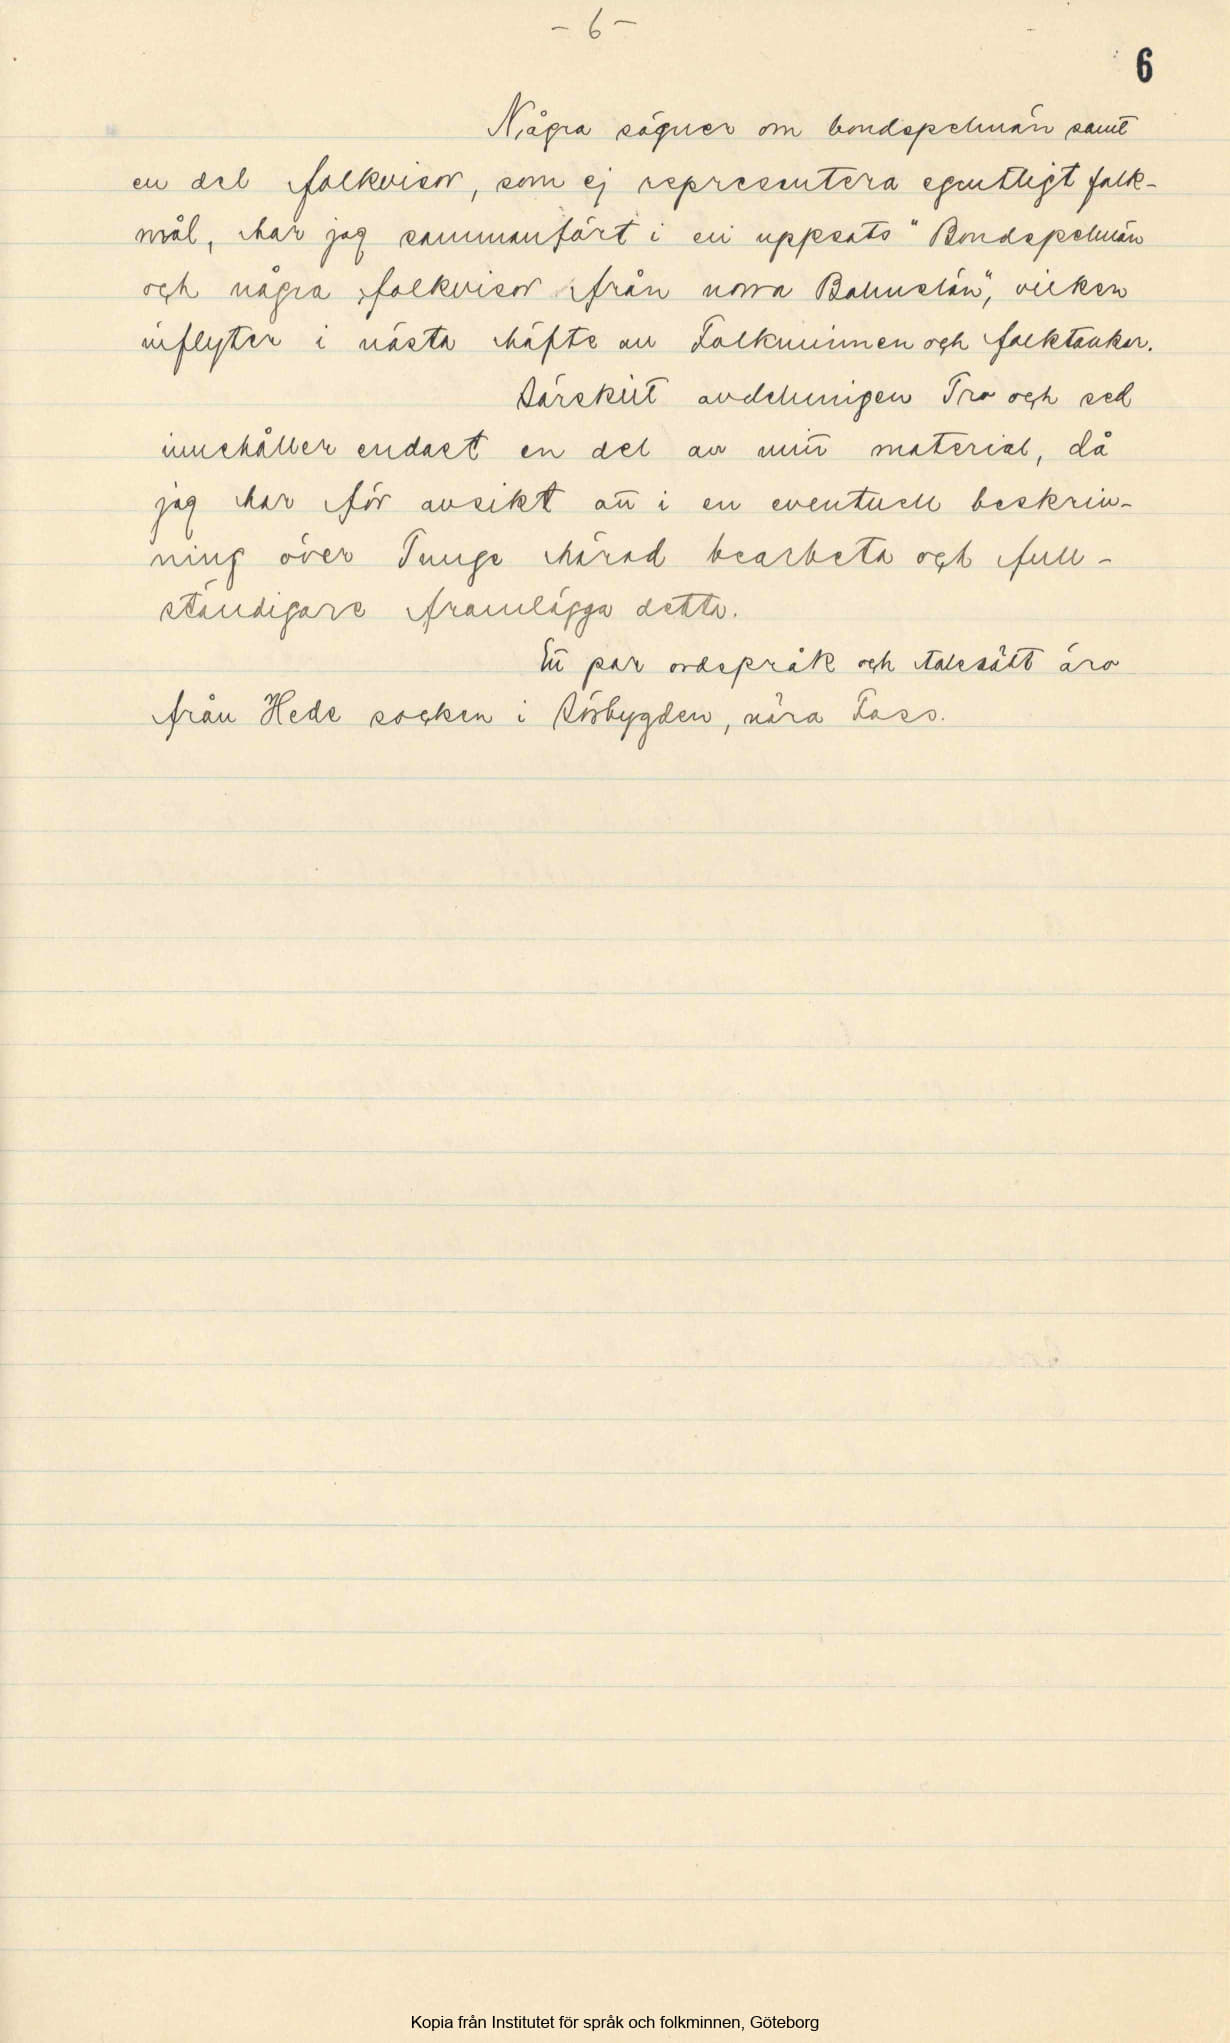 - 6 -
6
Några sägner om bondspelmän samt
en del folkvisor, som ej representera egentligt folk-
mål, har jag sammanfört i en uppsats "Bondspelmän
och några folkvisor från norra Bohuslän", vilken
inflyter i nästa häfte av Folkminnen och folktankar.
Särskilt avdelningen Tro och sed
innehåller endast en del av mitt material, då
jag har för avsikt att i en eventuell beskriv-
ning över Tunge härad bearbeta och full-
ständigare framlägga detta.
Ett par ordspråk och talesätt äro
från Hede socken i Sörbygden, nära Foss.
Kopia från Institutet för språk och folkminnen, Göteborg